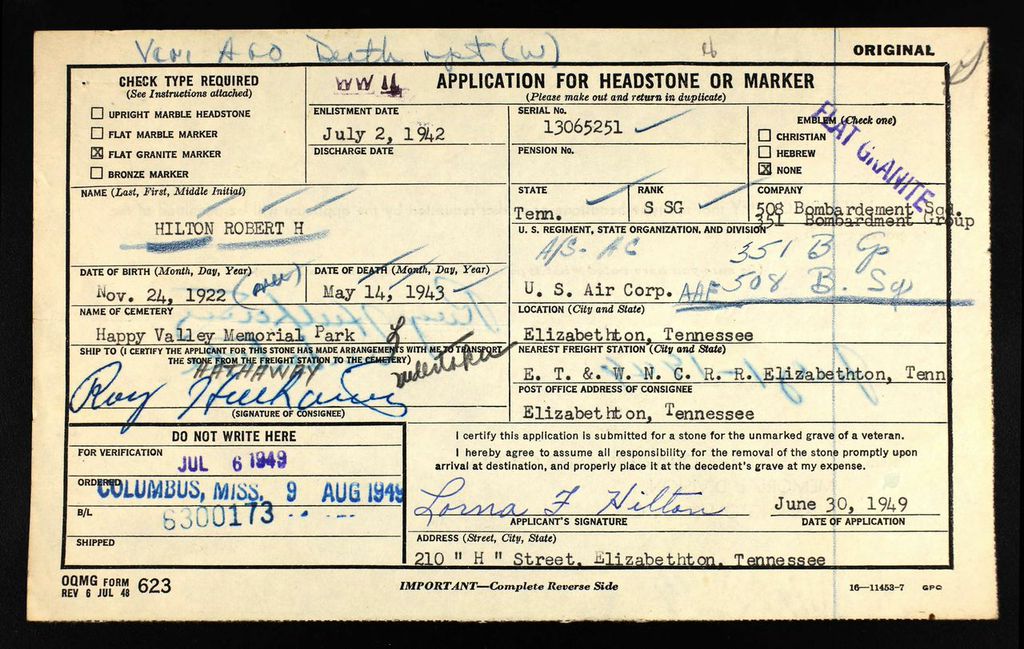 Veri AGO Death rept (W)
ORIGINAL
CHECK TYPE REQUIRED
(See Instructions attached)
UPRIGHT MARBLE HEADSTONE
FLAT MARBLE MARKER
FLAT GRANITE MARKER
BRONZE MARKER
WW II
APPLICATION FOR HEADSTONE OR MARKER
(Please make out and return in duplicate)
ENLISTMENT DATE
July 2, 1942
DISCHARGE DATE
SERIAL No.
13065251
PENSION No.
EMBLEM (Check one)
CHRISTIAN
HEBREW
NONE
FLAT GRANITE
NAME (Last, First, Middle Initial)
HILTON ROBERT H
STATE
Tenn.
RANK
S SG
COMPANY
508 Bombardement Sqd.
351 Bombardment Group
U. S. REGIMENT, STATE ORGANIZATION, AND DIVISION
A/S- AC 351 B Gp
U. S. Air Corp. AAF 508 B. Sq
DATE OF BIRTH (Month, Day, Year)
Nov. 24, 1922
DATE OF DEATH (Month, Day, Year)
May 14, 1943
NAME OF CEMETERY
Happy Valley Memorial Park
LOCATION (City and State)
Elizabethton, Tennessee
SHIP TO (I CERTIFY THE APPLICANT FOR THIS STONE HAS MADE ARRANGEMENTS WITH ME TO TRANSPORT
THE STONE FROM THE FREIGHT STATION TO THE CEMETERY)
HATHAWAY
Roy Hathaway
undertaker
(SIGNATURE OF CONSIGNEE)
NEAREST FREIGHT STATION (City and State)
E. T. &. W. N. C. R. R. Elizabethton, Tenn
POST OFFICE ADDRESS OF CONSIGNEE
Elizabethton, Tennessee
DO NOT WRITE HERE
FOR VERIFICATION
JUL 6 1949
ORDERED
COLUMBUS, MISS. 9 AUG 1949
B/L
6300173
SHIPPED
I certify this application is submitted for a stone for the unmarked grave of a veteran.
I hereby agree to assume all responsibility for the removal of the stone promptly upon
arrival at destination, and properly place it at the decedent's grave at my expense.
Lorna F Hilton
APPLICANT'S SIGNATURE
June 30, 1949
DATE OF APPLICATION
ADDRESS (Street, City, State)
210 " H " Street, Elizabethton, Tennessee
OQMG FORM 623
REV 6 JUL 48
IMPORTANT—Complete Reverse Side
16—11453-7 GPO